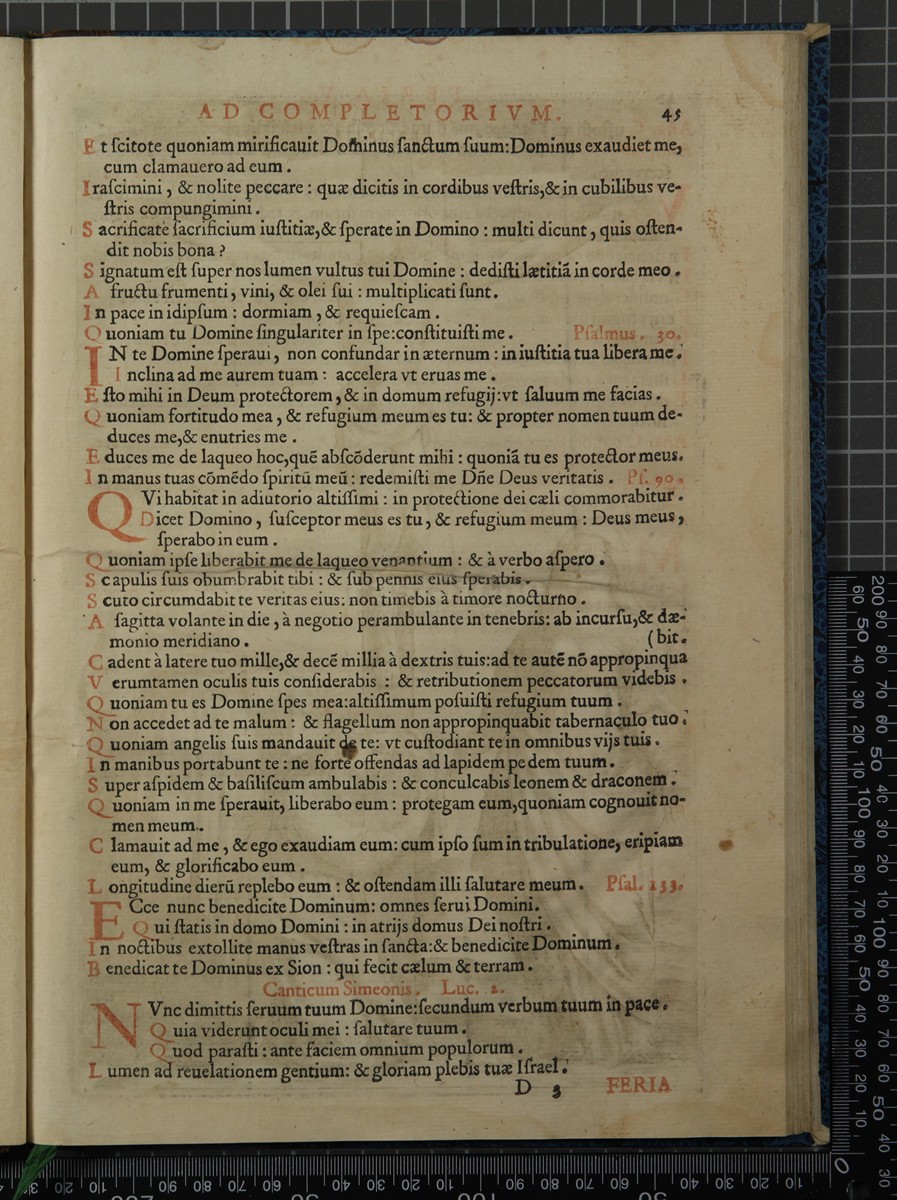 AD COMPLETORIVM. 45
Et ſcitote quoniam mirificauit Dominus ſanctum ſuum:Dominus exaudiet me,
cum clamauero ad eum.
Iraſcimini, & nolite peccare: quæ dicitis in cordibus veſtris,& in cubilibus ve-
ſtris compungimini.
Sacrificate ſacrificium iuſtitiæ,& ſperate in Domino: multi dicunt, quis oſten-
dit nobis bona?
Signatum eſt ſuper nos lumen vultus tui Domine: dediſti lætitiā in corde meo.
A fructu frumenti, vini, & olei ſui: multiplicati ſunt.
In pace in idipſum: dormiam, & requieſcam.
Quoniam tu Domine ſingulariter in ſpe:conſtituiſti me. Pſalmus. 30.
IN te Domine ſperaui, non confundar in æternum: in iuſtitia tua libera me.
Inclina ad me aurem tuam: accelera vt eruas me.
Eſto mihi in Deum protectorem, & in domum refugij:vt ſaluum me facias.
Quoniam fortitudo mea, & refugium meum es tu: & propter nomen tuum de-
duces me,& enutries me.
Educes me de laqueo hoc,quē abſcōderunt mihi: quoniā tu es protector meus.
In manus tuas cōmēdo ſpiritū meū: redemiſti me Dñe Deus veritatis. Pſ. 90.
QVi habitat in adiutorio altiſſimi: in protectione dei cæli commorabitur.
Dicet Domino, ſuſceptor meus es tu, & refugium meum: Deus meus,
ſperabo in eum.
Quoniam ipſe liberabit me de laqueo venantium: & à verbo aſpero.
Scapulis ſuis obumbrabit tibi: & ſub pennis eius ſperabis.
Scuto circumdabit te veritas eius: non timebis à timore nocturno.
A ſagitta volante in die, à negotio perambulante in tenebris: ab incurſu,& dæ-
monio meridiano. (bit.
Cadent à latere tuo mille,& decē millia à dextris tuis:ad te autē nō appropinqua
Verumtamen oculis tuis conſiderabis: & retributionem peccatorum videbis.
Quoniam tu es Domine ſpes mea:altiſſimum poſuiſti refugium tuum.
Non accedet ad te malum: & flagellum non appropinquabit tabernaculo tuo.
Quoniam angelis ſuis mandauit de te: vt cuſtodiant te in omnibus vijs tuis.
In manibus portabunt te: ne forte offendas ad lapidem pedem tuum.
Super aſpidem & baſiliſcum ambulabis: & conculcabis leonem & draconem.
Quoniam in me ſperauit, liberabo eum: protegam eum,quoniam cognouit no-
men meum.
Clamauit ad me, & ego exaudiam eum: cum ipſo ſum in tribulatione, eripiam
eum, & glorificabo eum.
Longitudine dierū replebo eum: & oſtendam illi ſalutare meum. Pſal. 133.
ECce nunc benedicite Dominum: omnes ſerui Domini.
Qui ſtatis in domo Domini: in atrijs domus Dei noſtri.
In noctibus extollite manus veſtras in ſancta:& benedicite Dominum.
Benedicat te Dominus ex Sion: qui fecit cælum & terram.
Canticum Simeonis. Luc. 2.
NVnc dimittis ſeruum tuum Domine:ſecundum verbum tuum in pace.
Quia viderunt oculi mei: ſalutare tuum.
Quod paraſti: ante faciem omnium populorum.
Lumen ad reuelationem gentium: & gloriam plebis tuæ Iſrael.
D 3 FERIA